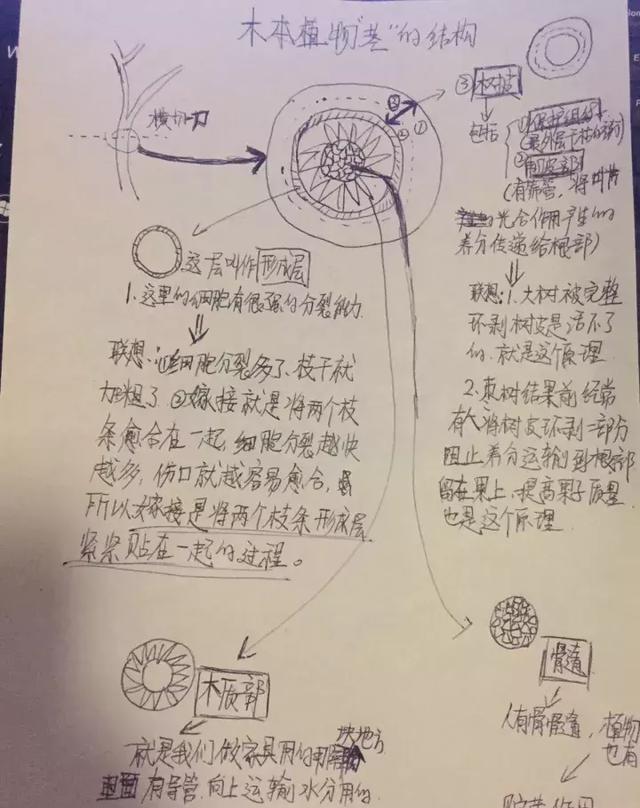 木本植物"茎"的结构
横切
③树皮
包括
①保护组织
(最外层干枯的部分)
②韧皮部
(有筛管,将叶片
光合作用产生的
养分传递给根部)
联想:1.大树被完整
环剥树皮是活不了
的.就是这个原理.
2.枣树结果前经常
有人将树皮环剥一部分
阻止养分运输到根部
留在果上,提高果子质量
也是这个原理.
③
②
①
这层叫作形成层
1.这里的细胞有很强的分裂能力.
联想:①细胞分裂多了,枝干就
加粗了.②嫁接就是将两个枝
条愈合在一起,细胞分裂越快
越多,伤口就越容易愈合,
所以嫁接是将两个枝条形成层
紧紧贴在一起的过程。
木质部
就是我们做家具用的那块地方
里面有导管.向上运输水分用的.
骨髓
人有骨骨髓,植物
也有
贮营作用